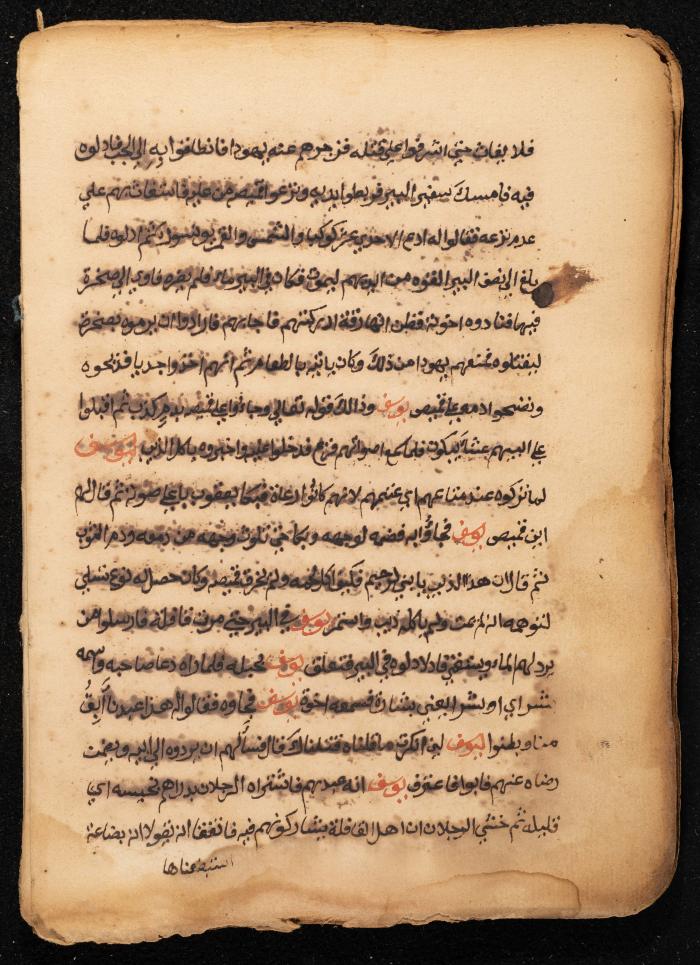 فلا يغاث حتي اشرفوا علي قتله فزجرهم عنه يهودا فانطلقوا به الي الجب فادلوه
فيه فامسك بشفير البير فربطوا يديه ونزعوا قميصه من عليه فاستغاث بهم علي
عدم نزعه فقالوا له ادع الاحدي عشر كوكب والشمس والقمر يونسوك ثم ادلوه فلما
بلغ الي نصف البير القوه من ايديهم ليموت فكان في البير ماء فلم يضره فاوي الي صخرة
فيها فنادوه اخوته فظن انها رقة ادركتهم فاجابهم فارادوا ان يرموه بصخرة
ليقتلوه فمنعهم يهودا من ذلك وكان ياتيه بالطعام ثم انهم اخذوا جديا فذبحوه
ونضحوا دمه علي قميص يوسف وذالك قوله تعالي وجاءوا علي قميصه بدم كذب ثم اقبلوا
علي ابيهم عشاء يبكون فلما سمع اصواتهم فزع فدخلوا عليه واخبروه باكل الذيب ليوسف
لما تركوه عند متاعهم اي غنمهم لانهم كانوا رعاة فبكا يعقوب باعلي صوته ثم قال لهم
اين قميص يوسف فجاؤا به فضمه لوجهه وبكا حتي تلوث وجهه من دمعه ودم الثوب
ثم قال ان هذا الذيب يا بني لرحيم فكيف اكل لحمه ولم يخرق قميصه وكان حصل له نوع تسلي
لتوهمه انه لم يمت ولم ياكله ذيب واستمر يوسف في البير حتي مرت قافلة فارسلوا من
يرد لهم الماء ويستقي فادلا دلوه في البير فتعلق يوسف بحبله فلما راه دعا صاحبه واسمه
بشراي او بشر يعني بشارة فسمعه اخوة يوسف فجاوه فقالوا له هذا عبدنا آبق
منا وبطنوا ليوسف لين انكرت ما قلناه قتلناك قال فسألهم ان يردوه الي ابيه ويضمن
رضاه عنهم فابوا فاعترف يوسف انه عبدهم فاشتراه الرجلان بدراهم بخيسه اي
قليله ثم خشي الرجلان ان اهل القافلة يشاركونهم فيه فاتفقا انه يقولا انه بضاعة